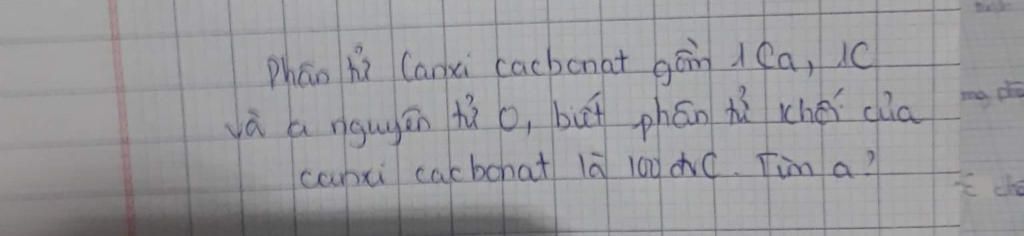 Phân tử Canxi cacbonat gồm 1Ca, 1C
và a nguyên tử O, biết phân tử khối của
canxi cacbonat là 100 đvC. Tìm a?